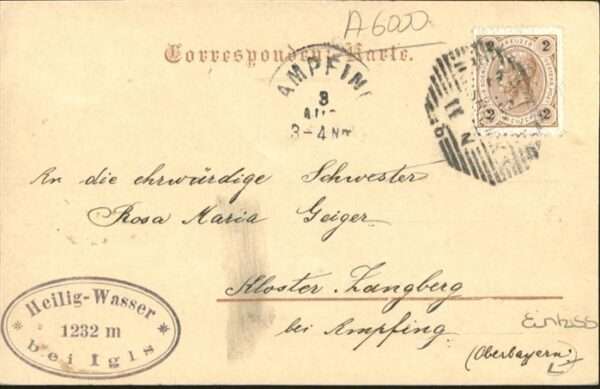 A6000
Correspondenz-Karte.
AMPFING
8
AUG
3-4 NM
KREUZER
2
2 2
11
An die ehrwürdige Schwester
Rosa Maria Geiger
Kloster Zangberg
bei Ampfing
(Oberbayern.)
Heilig-Wasser
* 1232 m *
bei Igls